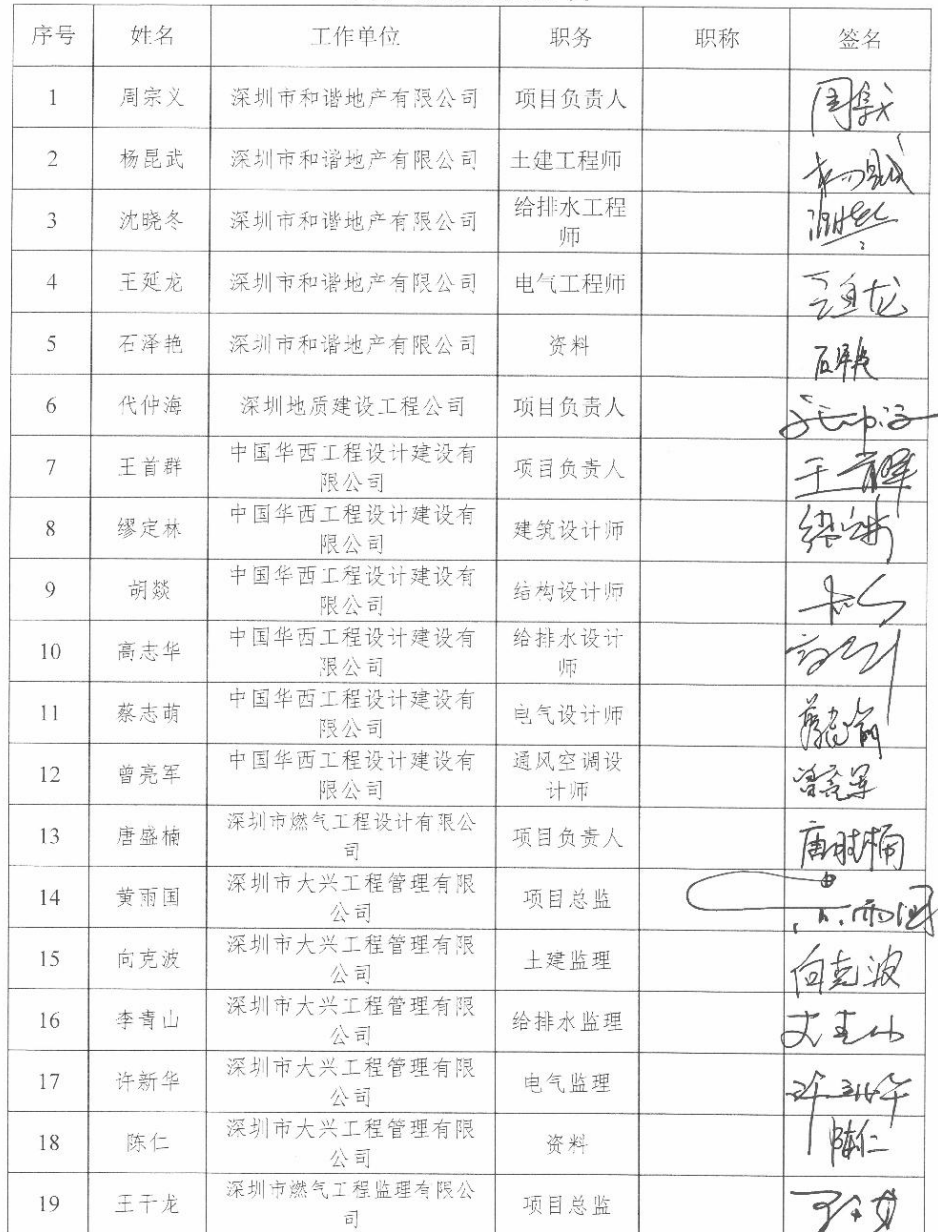 序号 姓名 工作单位 职务 职称 签名
1 周宗义 深圳市和谐地产有限公司 项目负责人
2 杨昆武 深圳市和谐地产有限公司 土建工程师 杨昆武
3 沈晓冬 深圳市和谐地产有限公司 给排水工程
师
4 王延龙 深圳市和谐地产有限公司 电气工程师 王延龙
5 石泽艳 深圳市和谐地产有限公司 资料 石泽艳
6 代仲海 深圳地质建设工程公司 项目负责人
7 王首群 中国华西工程设计建设有 项目负责人 王首群
限公司
8 缪定林 中国华西工程设计建设有 建筑设计师
限公司
9 胡燚 中国华西工程设计建设有 结构设计师
限公司
10 高志华 中国华西工程设计建设有 给排水设计
限公司 师
11 蔡志萌 中国华西工程设计建设有 电气设计师
限公司
12 曾亮军 中国华西工程设计建设有 通风空调设 曾亮军
限公司 计师
13 唐盛楠 深圳市燃气工程设计有限公 项目负责人 唐盛楠
司
14 黄雨国 深圳市大兴工程管理有限 项目总监
公司
15 向克波 深圳市大兴工程管理有限 土建监理 向克波
公司
16 李青山 深圳市大兴工程管理有限 给排水监理
公司
17 许新华 深圳市大兴工程管理有限 电气监理
公司
18 陈仁 深圳市大兴工程管理有限 资料 陈仁
公司
19 王干龙 深圳市燃气工程监理有限公 项目总监
司